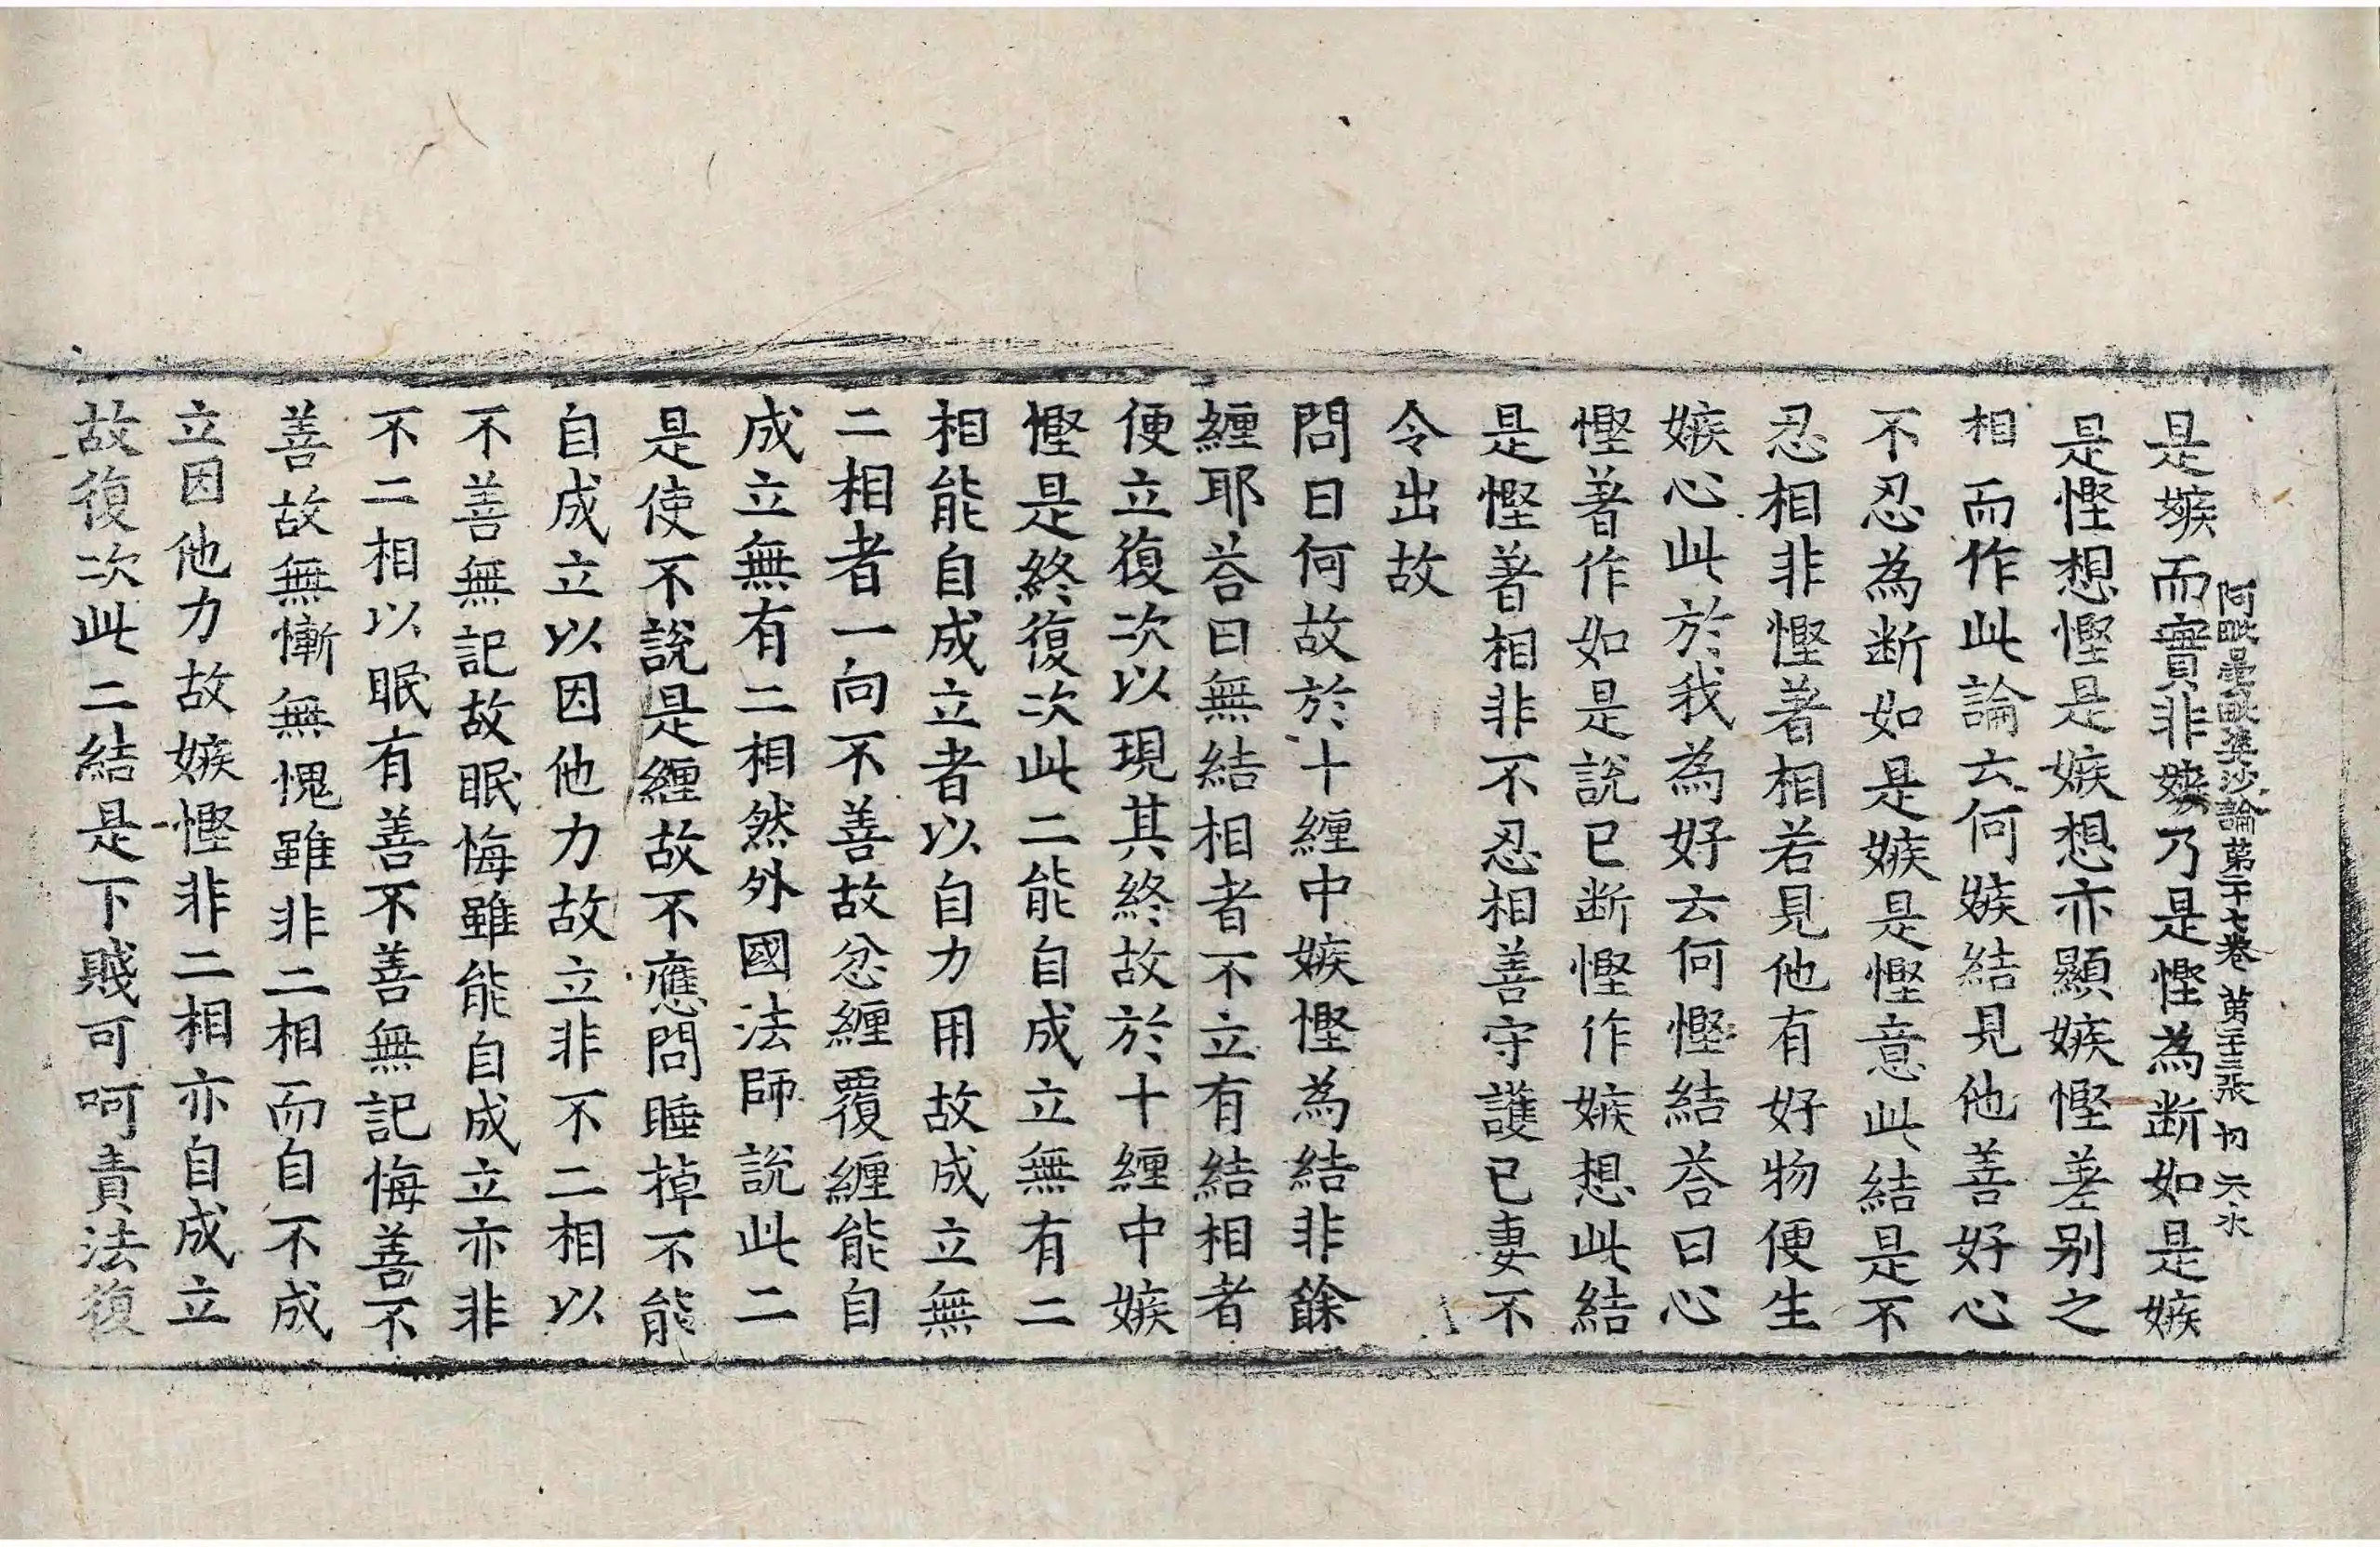 阿毗曇毗婆沙論第二十七卷 第二十三張 初 天永
是嫉而實非嫉乃是慳為断如是嫉
是慳想慳是嫉想亦顯嫉慳差别之
相而作此論云何嫉結見他善好心
不忍為断如是嫉是慳意此結是不
忍相非慳著相若見他有好物便生
嫉心此於我為好云何慳結荅曰心
慳著作如是說已断慳作嫉想此結
是慳著相非不忍相善守護已妻不
令出故
問曰何故於十纏中嫉慳為結非餘
纏耶荅曰無結相者不立有結相者
便立復次以現其終故於十纏中嫉
慳是終復次此二能自成立無有二
相能自成立者以自力用故成立無
二相者一向不善故忿纏覆纏能自
成立無有二相然外國法師說此二
是使不說是纏故不應問睡掉不能
自成立以因他力故立非不二相以
不善無記故眠悔雖能自成立亦非
不二相以眠有善不善無記悔善不
善故無慚無愧雖非二相而自不成
立因他力故嫉慳非二相亦自成立
故復次此二結是下賤可呵責法復